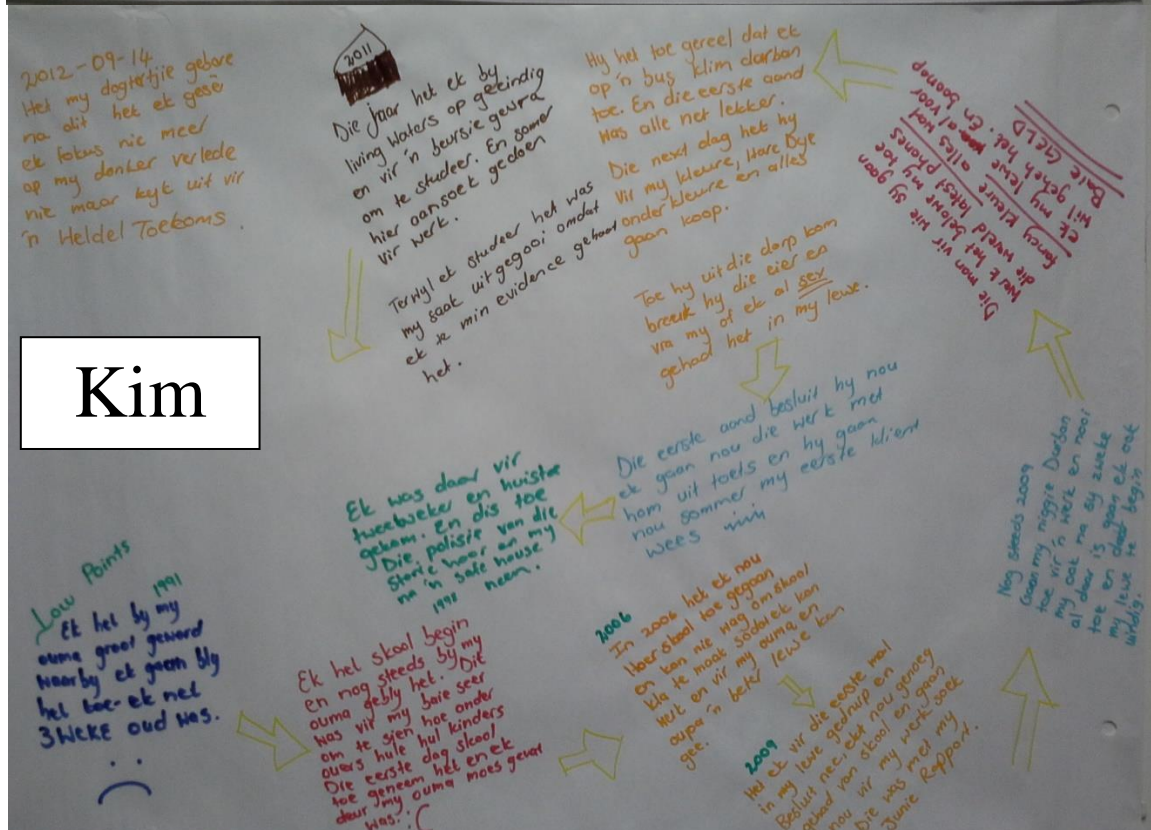 2012-09-14
Het my dogtertjie gebore
na dit het ek gesê
ek fokus nie meer
op my donker verlede
nie maar kyk uit vir
'n Heldel Toekoms.
2011
Die jaar het ek by
living waters op geeindig
en vir 'n beursie gevra
om te studeer. En somer
hier aansoek gedoen
vir werk.
Terwyl ek studeer het was
my saak uitgegooi omdat
ek te min evidence gehad
het.
Hy het toe gereel dat ek
op 'n bus klim darban
toe. En die eerste aand
was alle net lekker.
Die next dag het hy
vir my kleure, Hare Dye
onderkleure en alles
gaan koop.
Toe hy uit die dorp kom
breek hy die eier en
vra my of ek al sex
gehad het in my lewe.
Die man vir wie sy gaan
werk het belowe my toe
die wereld latest phones
fancy kleure alles wat
ek my lewe al voor
wil gehad het. En boonop
Baie GELD
Kim
Die eerste aand besluit hy nou
ek gaan nou die werk met
hom uit toets en hy gaan
nou sommer my eerste klient
wees
Ek was daar vir
tweeweker en huistoe
gekom. En dis toe
Die polisie van die
storie hoor en my
na 'n safe house
neem.
Nog steeds 2009
Gaan my niggie Durban
toe vir 'n werk en nooi
my ook na sy zweke
al daar is gaan ek ook
toe en daar begin
my lewe te
eindig.
Low Points
1991
Ek het by my
ouma groot geword
waarby ek gaan bly
het toe ek net
3 WEKE oud was.
1998
Ek het skool begin
en nog steeds by my
ouma gebly het. Dit
was vir my baie seer
om te sien hoe ander
ouers hule hul kinders
Die eerste dag skool
toe geneem het en ek
deur my ouma moes gevat
was.
2006
In 2006 het ek nou
Hoerskool toe gegaan
en kan nie wag om skool
kla te maak sodat ek kan
werk en vir my ouma en
oupa 'n beter lewe kan
gee.
2009
Het ek vir die eerste mal
in my lewe gednup en
Besluit nee, ekt nou genoeg
gehad van skool en gaan
nou vir my werk soek
Die was met my
Junie Rapport.